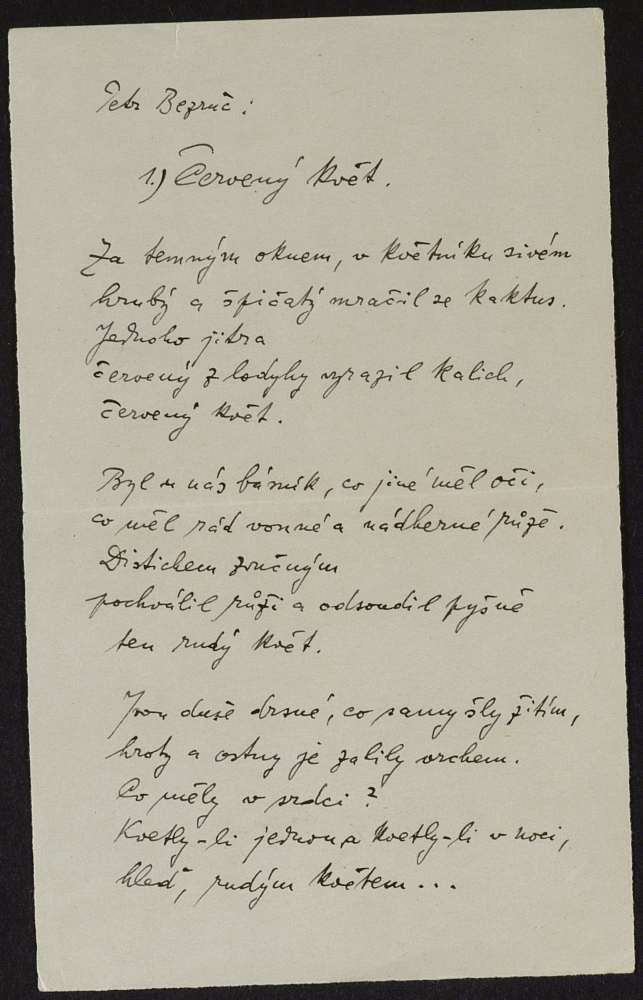 Petr Bezruč:
1.) Červený květ.
Za temným oknem, v květníku sivém
hrubý a špičatý mračil se kaktus.
Jednoho jitra
červený z lodyhy vyrazil kalich,
červený květ.
Byl u nás básník, co jiné měl oči,
co měl rád vonné a nádherné růže.
Distichem zvučným
pochválil růži a odsoudil pyšně
ten rudý květ.
Jsou duše drsné, co samy šly žitím,
hroty a ostny je zalily vrchem.
Co měly v srdci?
Kvetly-li jednou a kvetly-li v noci,
hleď, rudým květem...